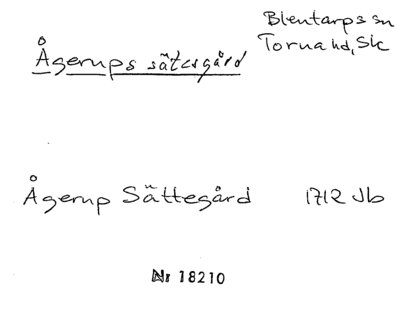 Blentarps sn
Torna hd, Sk
Ågerups sätesgård
Ågerup Sättegård 1712 Jb
Nr 18210